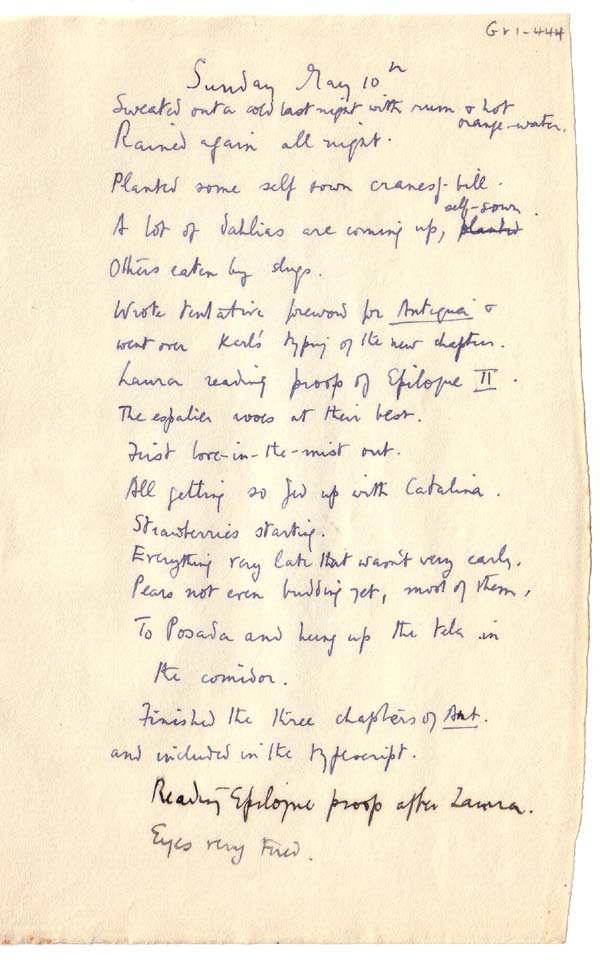 Gr 1-444
Sunday May 10th
Sweated out a cold last night with rum & hot
orange-water.
Rained again all night.
Planted some self sown cranes-bill.
self-sown.
A lot of dahlias are coming up, planted
Others eaten by slugs.
Wrote tentative foreword for Antigua &
went over Karl's typing of the new chapters.
Laura reading proofs of Epilogue II.
The espalier roses at their best.
First love-in-the-mist out.
All getting so fed up with Catalina.
Strawberries starting.
Everything very late that wasn't very early.
Pears not even budding yet, most of them,
To Posada and hung up the tela in
the comidor.
Finished the three chapters of Ant.
and included in the typescript.
Reading Epilogue proofs after Laura.
Eyes very tired.